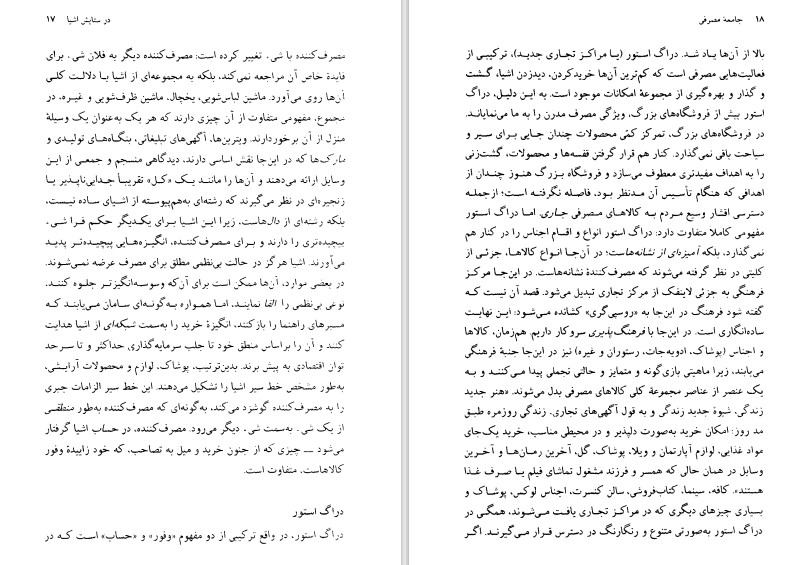 در ستایش اشیا ۱۷
مصرف‌کننده با شیء تغییر کرده است: مصرف‌کننده دیگر به فلان شیء برای
فایدهٔ خاص آن مراجعه نمی‌کند، بلکه به مجموعه‌ای از اشیا با دلالت کلی
آن‌ها روی می‌آورد. ماشین لباس‌شویی، یخچال، ماشین ظرف‌شویی و غیره، در
مجموع، مفهومی متفاوت از آن چیزی دارند که هر یک به‌عنوان یک وسیلهٔ
منزل از آن برخوردارند. ویترین‌ها، آگهی‌های تبلیغاتی، بنگاه‌های تولیدی و
مارک‌ها که در این‌جا نقش اساسی دارند، دیدگاهی منسجم و جمعی از این
وسایل ارائه می‌دهند و آن‌ها را مانند یک «کل» تقریباً جدایی‌ناپذیر یا
زنجیره‌ای در نظر می‌گیرند که رشته‌ای به‌هم‌پیوسته از اشیای ساده نیست،
بلکه رشته‌ای از دال‌هاست، زیرا این اشیا برای یکدیگر حکم فرا شیء
پیچیده‌تری را دارند و برای مصرف‌کننده، انگیزه‌هایی پیچیده‌تر پدید
می‌آورند. اشیا هرگز در حالت بی‌نظمی مطلق برای مصرف عرضه نمی‌شوند.
در بعضی موارد، آن‌ها ممکن است برای آن‌که وسوسه‌انگیزتر جلوه کنند،
نوعی بی‌نظمی را القا نمایند، اما همواره به‌گونه‌ای سامان می‌یابند که
مسیرهای راهنما را بازکنند، انگیزهٔ خرید را به‌سمت شبکه‌ای از اشیا هدایت
کنند و آن را براساس منطق خود تا جلب سرمایه‌گذاری حداکثر و تا سرحد
توان اقتصادی به پیش برند. بدین‌ترتیب، پوشاک، لوازم و محصولات آرایشی،
به‌طور مشخص خط سیر اشیا را تشکیل می‌دهند. این خط سیر الزامات جبری
را به مصرف‌کننده گوشزد می‌کند، به‌گونه‌ای که مصرف‌کننده به‌طور منطقی
از یک شیء به‌سمت شیء دیگر می‌رود. مصرف‌کننده، در حساب اشیا گرفتار
می‌شود ــ چیزی که از جنون خرید و میل به تصاحب، که خود زاییدهٔ وفور
کالاهاست، متفاوت است.
دراگ استور
دراگ استور، در واقع ترکیبی از دو مفهوم «وفور» و «حساب» است که در
۱۸ جامعهٔ مصرفی
بالا از آن‌ها یاد شد. دراگ استور (یا مراکز تجاری جدید)، ترکیبی از
فعالیت‌هایی مصرفی است که کم‌ترین آن‌ها خریدکردن، دیدزدن اشیا، گشت
و گذار و بهره‌گیری از مجموعهٔ امکانات موجود است. به این دلیل، دراگ
استور بیش از فروشگاه‌های بزرگ، ویژگی مصرف مدرن را به ما می‌نمایاند.
در فروشگاه‌های بزرگ، تمرکز کمّی محصولات چندان جایی برای سیر و
سیاحت باقی نمی‌گذارد. کنار هم قرار گرفتن قفسه‌ها و محصولات، گشت‌زنی
را به اهداف مفیدتری معطوف می‌سازد و فروشگاه بزرگ هنوز چندان از
اهدافی که هنگام تأسیس آن مدنظر بود، فاصله نگرفته است؛ ازجمله
دسترسی اقشار وسیع مردم به کالاهای مصرفی جاری. اما دراگ استور
مفهومی کاملا متفاوت دارد: دراگ استور انواع و اقسام اجناس را در کنار هم
نمی‌گذارد، بلکه آمیزه‌ای از نشانه‌هاست؛ در آن‌جا انواع کالاها، جزئی از
کلیتی در نظر گرفته می‌شوند که مصرف‌کنندهٔ نشانه‌هاست. در این‌جا مرکز
فرهنگی به جزئی لاینفک از مرکز تجاری تبدیل می‌شود. قصد آن نیست که
گفته شود فرهنگ در این‌جا به «روسپی‌گری» کشانده می‌شود: این نهایت
ساده‌انگاری است. در این‌جا با فرهنگ‌پذیری سروکار داریم. هم‌زمان، کالاها
و اجناس (پوشاک، ادویه‌جات، رستوران و غیره) نیز در این‌جا جنبهٔ فرهنگی
می‌یابند، زیرا ماهیتی بازی‌گونه و متمایز و حالتی تجملی پیدا می‌کنند و به
یک عنصر از عناصر مجموعهٔ کلی کالاهای مصرفی بدل می‌شوند. «هنر جدید
زندگی، شیوهٔ جدید زندگی و به قول آگهی‌های تجاری، زندگی روزمره طبق
مد روز: امکان خرید به‌صورت دلپذیر و در محیطی مناسب، خرید یک‌جای
مواد غذایی، لوازم آپارتمان و ویلا، پوشاک، گل، آخرین رمان‌ها و آخرین
وسایل در همان حالی که همسر و فرزند مشغول تماشای فیلم یا صرف غذا
هستند». کافه، سینما، کتاب‌فروشی، سالن کنسرت، اجناس لوکس، پوشاک و
بسیاری چیزهای دیگری که در مراکز تجاری یافت می‌شوند، همگی در
دراگ استور به‌صورتی متنوع و رنگارنگ در دسترس قرار می‌گیرند. اگر